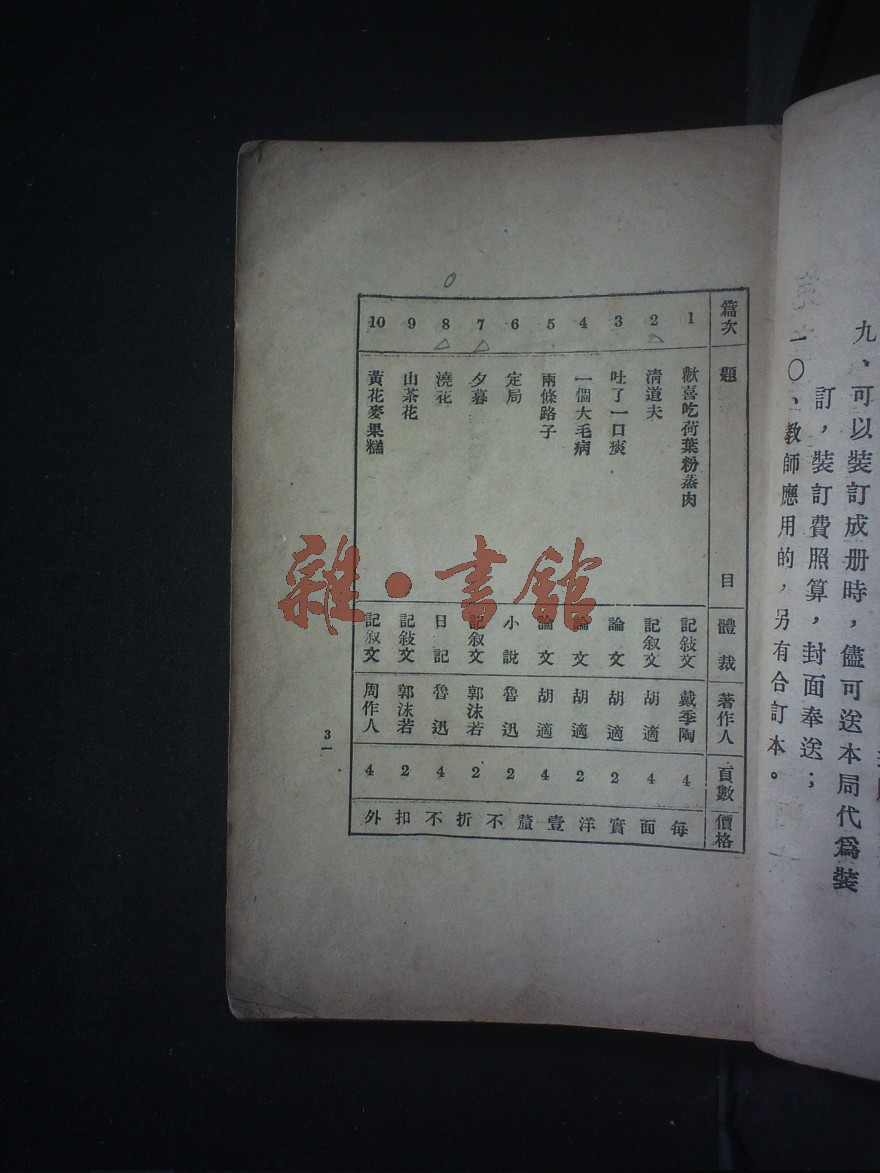 九、可以裝訂成册時，儘可送本局代爲裝
訂，裝訂費照算，封面奉送；
一〇、教師應用的，另有合訂本。
篇次 題 目 體裁 著作人 頁數 價格
1 歡喜吃荷葉粉蒸肉 記敍文 戴季陶 4 每
2 清道夫 記叙文 胡適 4 面
3 吐了一口痰 論文 胡適 2 實
4 一個大毛病 論文 胡適 2 洋
5 兩條路子 論文 胡適 4 壹
6 定局 小說 魯迅 2 釐
7 夕暮 記叙文 郭沫若 2 不
8 澆花 日記 魯迅 4 折
9 山茶花 記敍文 郭沫若 2 不
10 黃花麥果糕 記叙文 周作人 4 扣
外
3
雜·書館